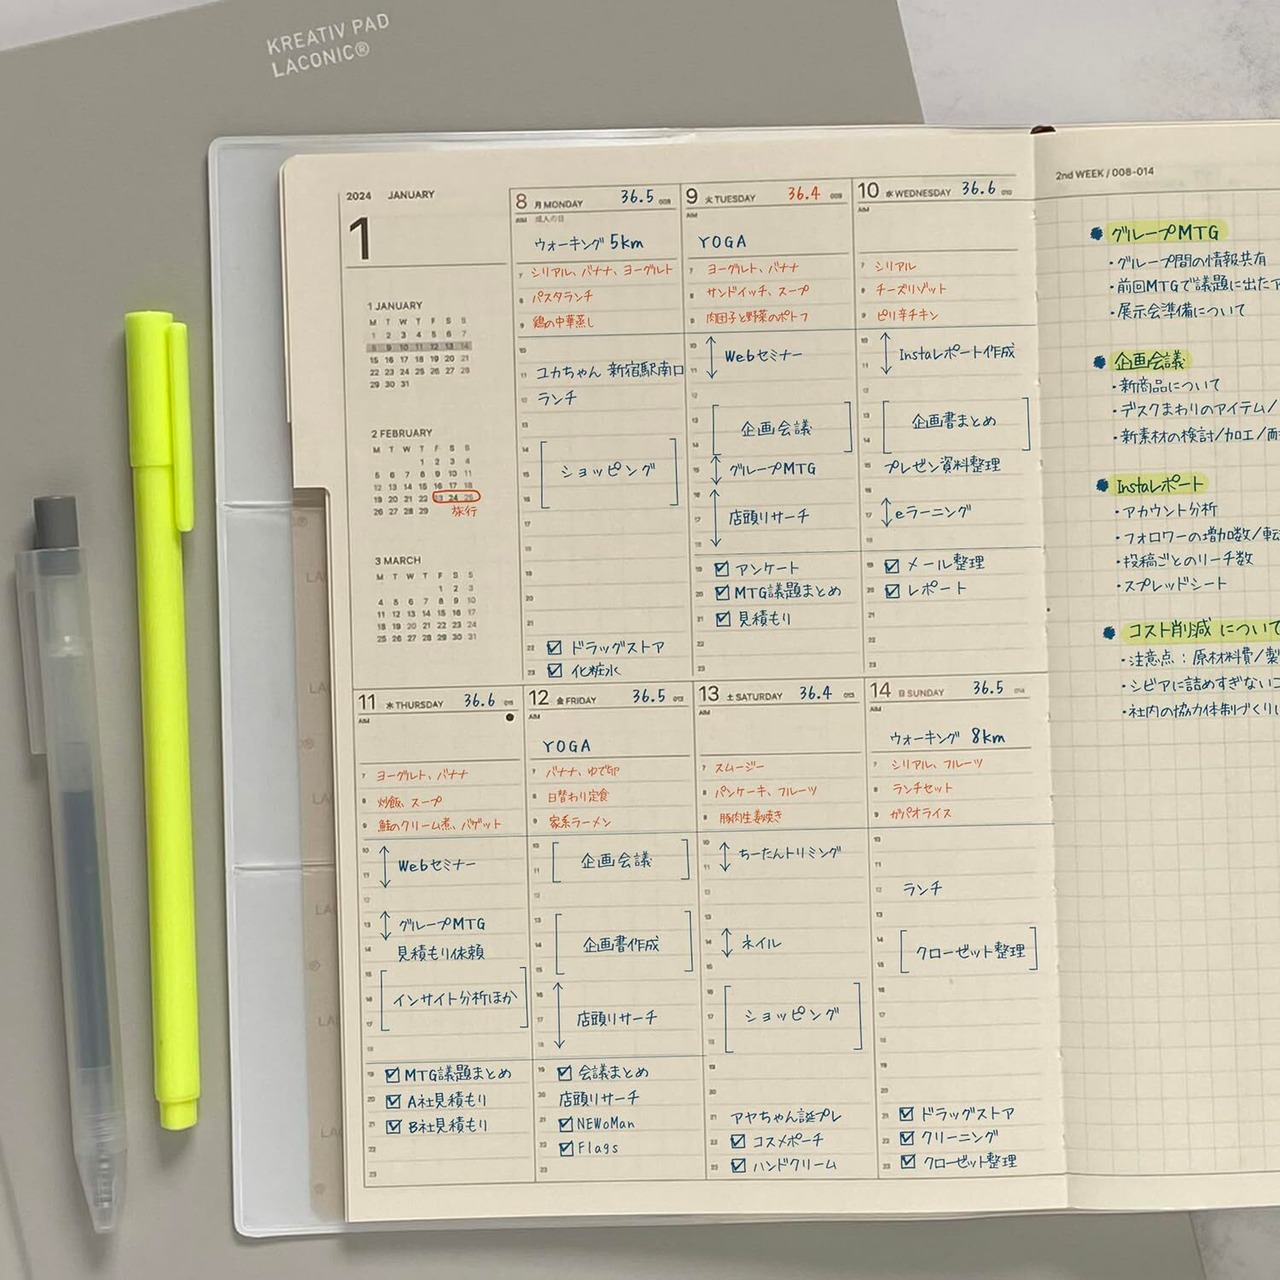 KREATIV PAD
LACONIC®
2024 JANUARY
1
1 JANUARY
M T W T F S S
1 2 3 4 5 6 7
8 9 10 11 12 13 14
15 16 17 18 19 20 21
22 23 24 25 26 27 28
29 30 31
2 FEBRUARY
M T W T F S S
1 2 3 4
5 6 7 8 9 10 11
12 13 14 15 16 17 18
19 20 21 22 23 24 25
26 27 28 29
旅行
3 MARCH
M T W T F S S
1 2 3
4 5 6 7 8 9 10
11 12 13 14 15 16 17
18 19 20 21 22 23 24
25 26 27 28 29 30 31
8 月 MONDAY 36.5 008
AIM 成人の日
ウォーキング 5km
シリアル、バナナ、ヨーグルト
パスタランチ
鶏の中華蒸し
ユカちゃん 新宿駅南口
ランチ
ショッピング
ドラッグストア
化粧水
9 火 TUESDAY 36.4 009
AIM
YOGA
ヨーグルト、バナナ
サンドイッチ、スープ
肉団子と野菜のポトフ
Webセミナー
企画会議
グループMTG
店頭リサーチ
アンケート
MTG議題まとめ
見積もり
10 水 WEDNESDAY 36.6 010
AIM
シリアル
チーズリゾット
ピリ辛チキン
Instaレポート作成
企画書まとめ
プレゼン資料整理
eラーニング
メール整理
レポート
11 木 THURSDAY 36.6 011
AIM
ヨーグルト、バナナ
炒飯、スープ
鮭のクリーム煮、バゲット
Webセミナー
グループMTG
見積もり依頼
インサイト分析ほか
MTG議題まとめ
A社見積もり
B社見積もり
12 金 FRIDAY 36.5 012
AIM
YOGA
バナナ、ゆで卵
日替わり定食
家系ラーメン
企画会議
企画書作成
店頭リサーチ
会議まとめ
店頭リサーチ
NEWoMan
Flags
13 土 SATURDAY 36.4 013
AIM
スムージー
パンケーキ、フルーツ
豚肉生姜焼き
ちーたんトリミング
ネイル
ショッピング
アヤちゃん誕プレ
コスメポーチ
ハンドクリーム
14 日 SUNDAY 36.5 014
AIM
ウォーキング 8km
シリアル、フルーツ
ランチセット
ガパオライス
ランチ
クローゼット整理
ドラッグストア
クリーニング
クローゼット整理
2nd WEEK / 008-014
グループMTG
・グループ間の情報共有
・前回MTGで議題に出たア
・展示会準備について
企画会議
・新商品について
・デスクまわりのアイテム/
・新素材の検討/加工/
Instaレポート
・アカウント分析
・フォロワーの増加数/転
・投稿ごとのリーチ数
・スプレッドシート
コスト削減について
・注意点:原材料費/製
・シビアに詰めすぎない
・社内の協力体制づくり